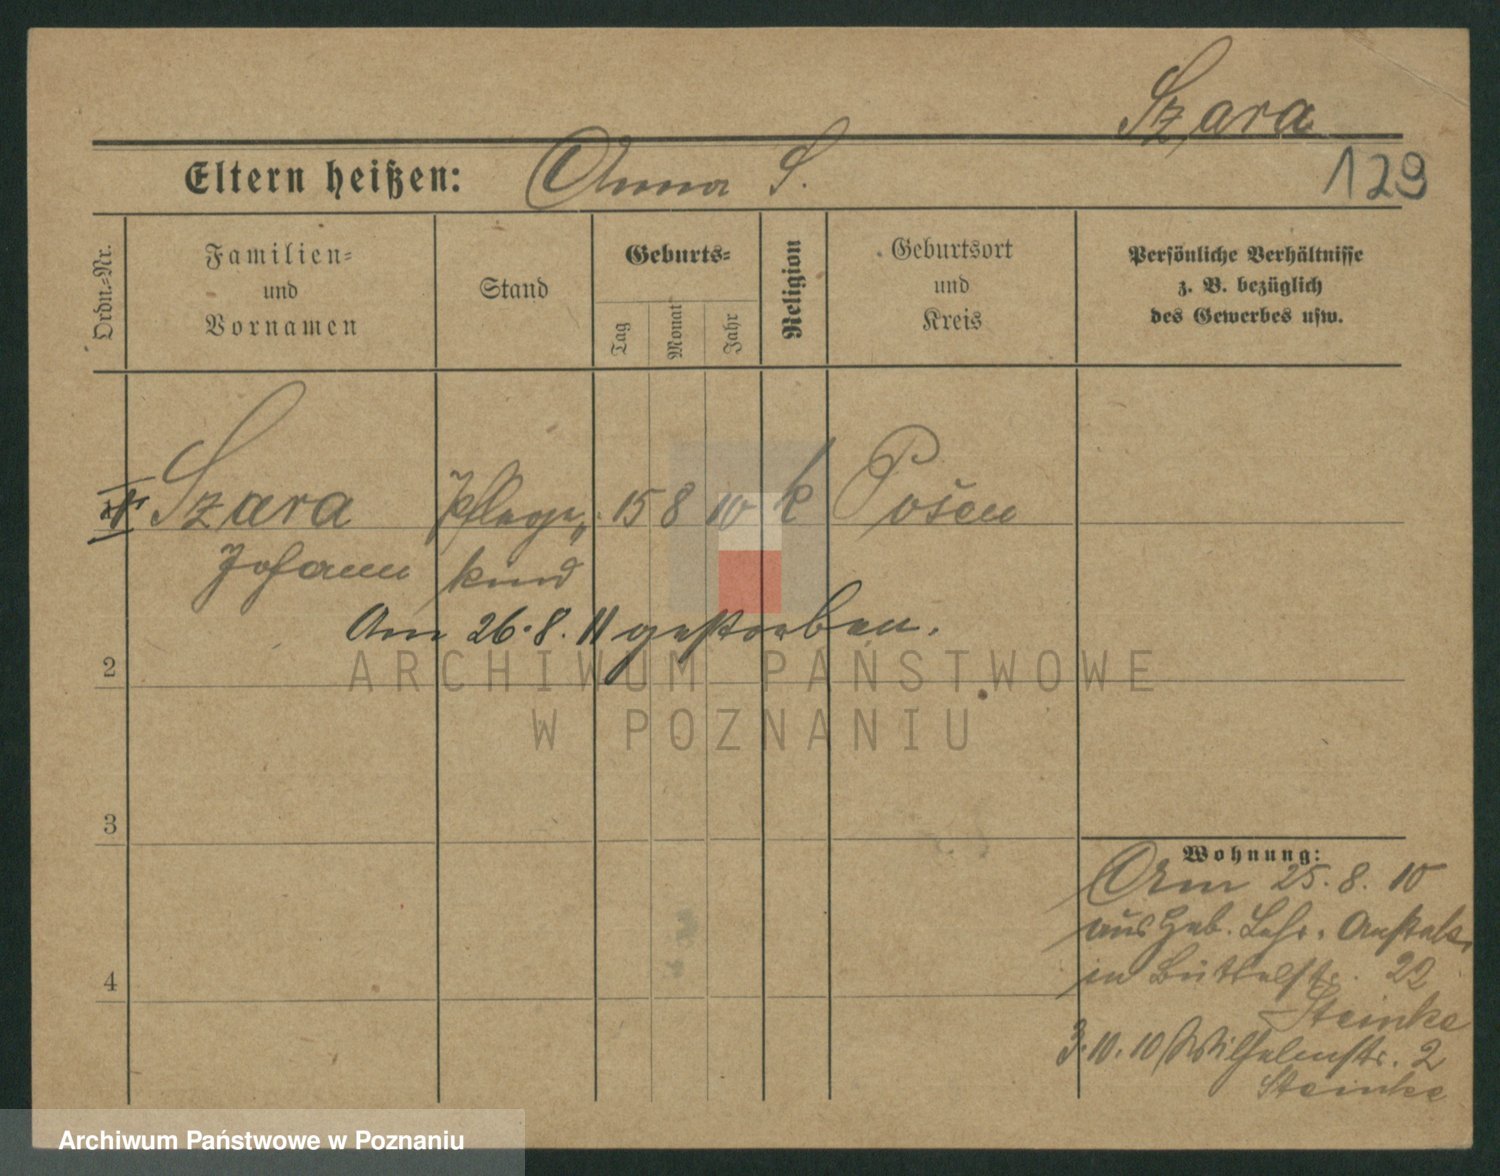 Szara
Eltern heißen: Anna S.
129
Ordn.=Nr.
Familien=
und
Vornamen
Stand
Geburts=
Tag
Monat
Jahr
Religion
Geburtsort
und
Kreis
Persönliche Verhältnisse
z. B. bezüglich
des Gewerbes usw.
Szara Pflege„ 15 8 10 k Posen
Johann kind
Am 26.8.11 gestorben.
2
ARCHIWUM PAŃSTWOWE
W POZNANIU
3
Wohnung:
Am 25.8.10
aus Heb. Lehr. Anstalt
in Büttelstr. 22
4
Steinke
3.10.10 Wilhelmstr. 2
Steinke
Archiwum Państwowe w Poznaniu